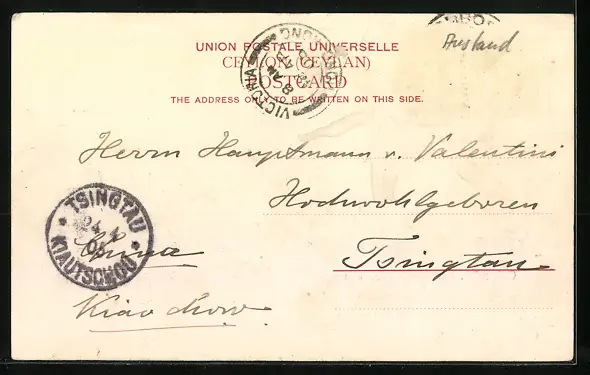 Ausland
UNION POSTALE UNIVERSELLE
CEYLON (CEYLAN)
POSTCARD
THE ADDRESS ONLY TO BE WRITTEN ON THIS SIDE.
VICTORIA HONG KONG
8 AM
Herrn Hauptmann v. Valentini
Hochwohlgeboren
TSINGTAU
24 4
KIAUTSCHOU
China
Tsingtau
Kiaochow